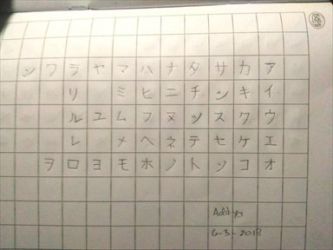 アイウエオ
カキクケコ
サシスセソ
タチツテト
ナニヌネノ
ハヒフヘホ
マミムメモ
ヤユヨ
ラリルレロ
ワヲ
ン
6-3-2018